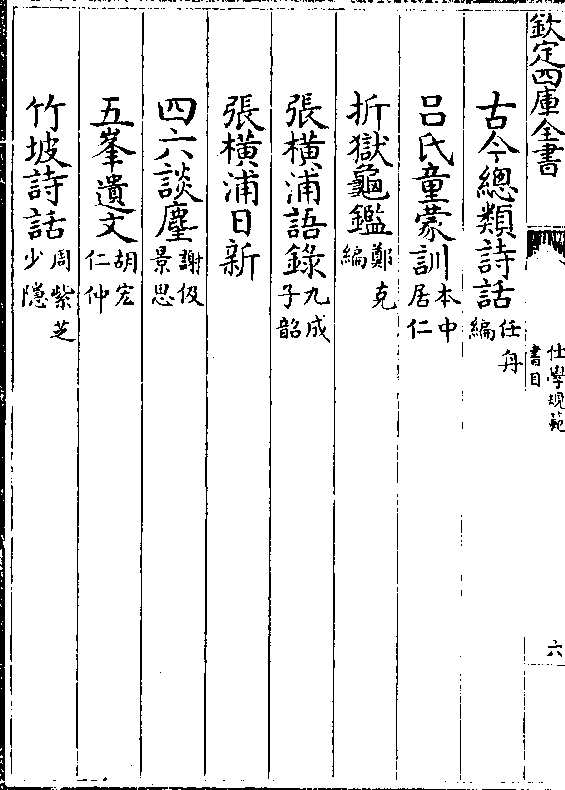 欽定四庫全書
仕學規範
書目
六
古今總類詩話任舟編
呂氏童蒙訓本中居仁
折獄龜鑑鄭克編
張橫浦語錄九成子韶
張橫浦日新
四六談麈謝伋景思
五峯遺文胡宏仁仲
竹坡詩話周紫芝少隱